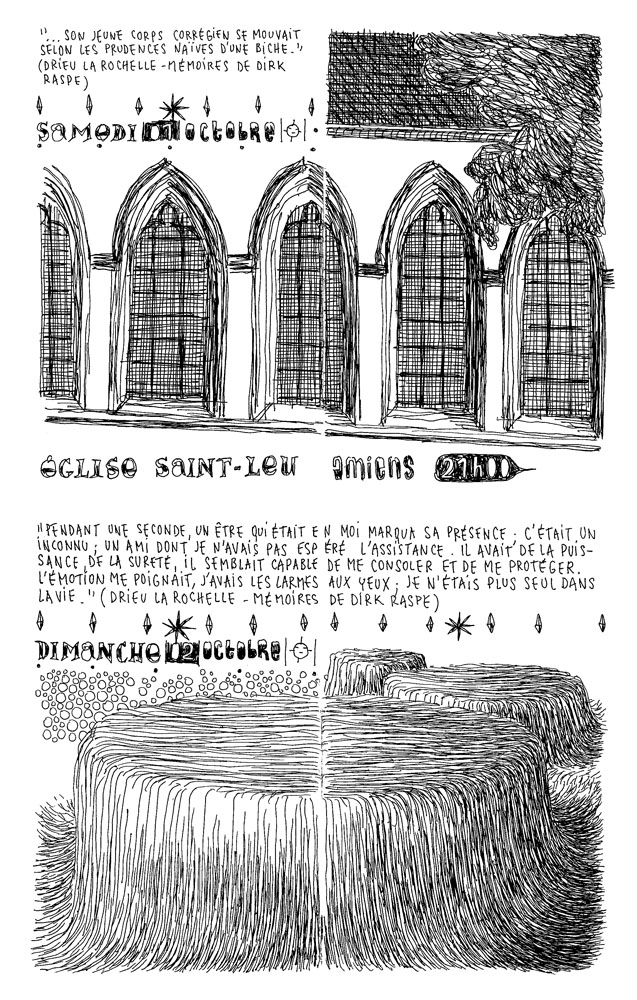 "... SON JEUNE CORPS CORRÉGIEN SE MOUVAIT
SELON LES PRUDENCES NAÏVES D'UNE BICHE."
(DRIEU LA ROCHELLE - MÉMOIRES DE DIRK
RASPE)
SAMEDI 01 OCTOBRE
ÉGLISE SAINT-LEU AMIENS 21H00
"PENDANT UNE SECONDE, UN ÊTRE QUI ÉTAIT EN MOI MARQUA SA PRÉSENCE : C'ÉTAIT UN
INCONNU ; UN AMI DONT JE N'AVAIS PAS ESPÉRÉ L'ASSISTANCE. IL AVAIT DE LA PUIS-
SANCE, DE LA SURETÉ, IL SEMBLAIT CAPABLE DE ME CONSOLER ET DE ME PROTÉGER.
L'ÉMOTION ME POIGNAIT, J'AVAIS LES LARMES AUX YEUX ; JE N'ÉTAIS PLUS SEUL DANS
LA VIE." (DRIEU LA ROCHELLE - MÉMOIRES DE DIRK RASPE)
DIMANCHE 02 OCTOBRE